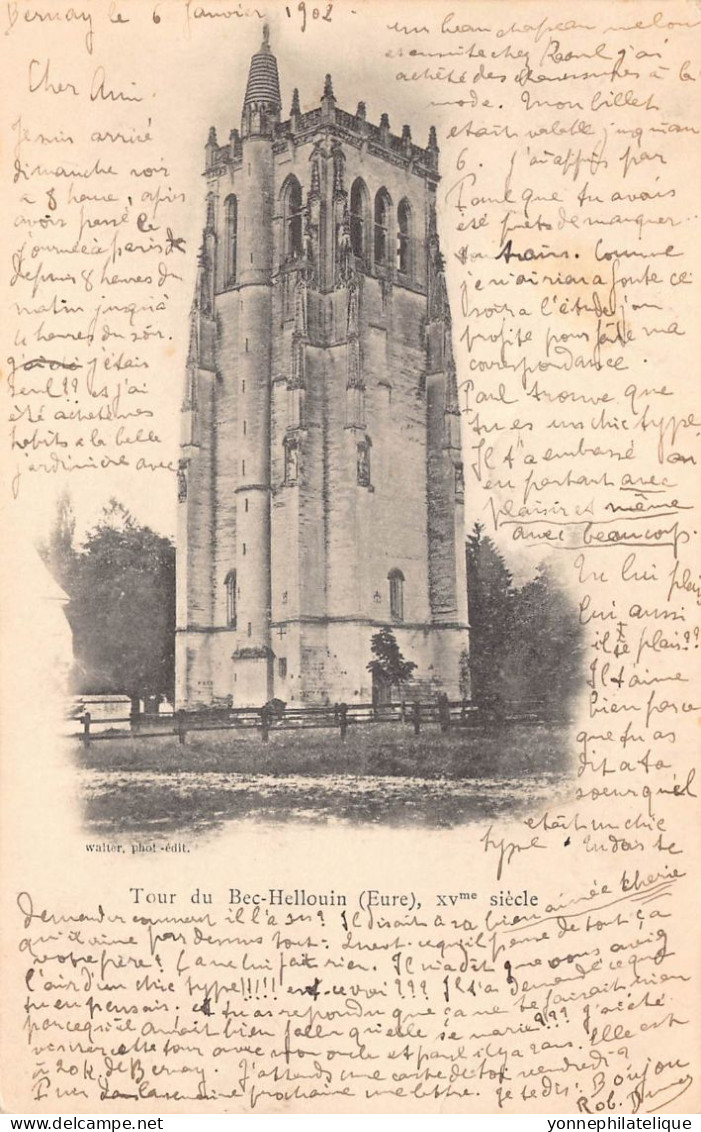 Bernay le 6 Janvier 1902
Cher Ami
Je suis arrivé
dimanche soir
a 8 heure, apres
avoir passé la
journée à paris
depuis 8 heures du
matin jusqu'à
4 heures du soir.
j'étais
seul?? et j'ai
été acheté mes
habits a la belle
jardinière avec
un beau chapeau melon
et ensuite chez Raoul j'ai
achêté des chaussures à la
mode. Mon billet
etait valable jusqu'au
6. J'ai appris par
Paul que tu avais
été prets de manquer
ton train. Comme
je n'ai rien a foute ce
soir a l'étude j'en
profite pour faire ma
correspondance.
Paul trouve que
tu es un chic type
Il t'a embrassé en
en partant avec
plaisir et même
avec beaucoup.
Tu lui plai
lui aussi
il te plais??
Il t'aime
bien parce
que tu as
dit a ta
soeur qu'il
etait un chic
type. Tu dois te
walter, phot.-édit.
Tour du Bec-Hellouin (Eure), xvme siècle
demander comment il l'a su? Il disait à sa bien aimée cherie
qu'il aime par dessus tout: Qu'est ce qu'il pense de tout ça
votre frère? Ça ne lui fait rien. Il m'a dit que vous aviez
l'air d'un chic type!!!!! est-ce vrai??? Il t'a demandé ce que
tu en pensais. et tu as repondu que ça ne te faisait rien
parcequ'il avait bien fallu qu'elle se marie??? J'a été
visiter cette tour avec mon oncle et paul il y a 2 ans. Elle est
à 20 k. de Bernay. J'attends une carte de toi vendredi?
Puis dans la semaine prochaine une lettre. Je te dis: Boujou
Rob.
www.yonnephilatelie.com